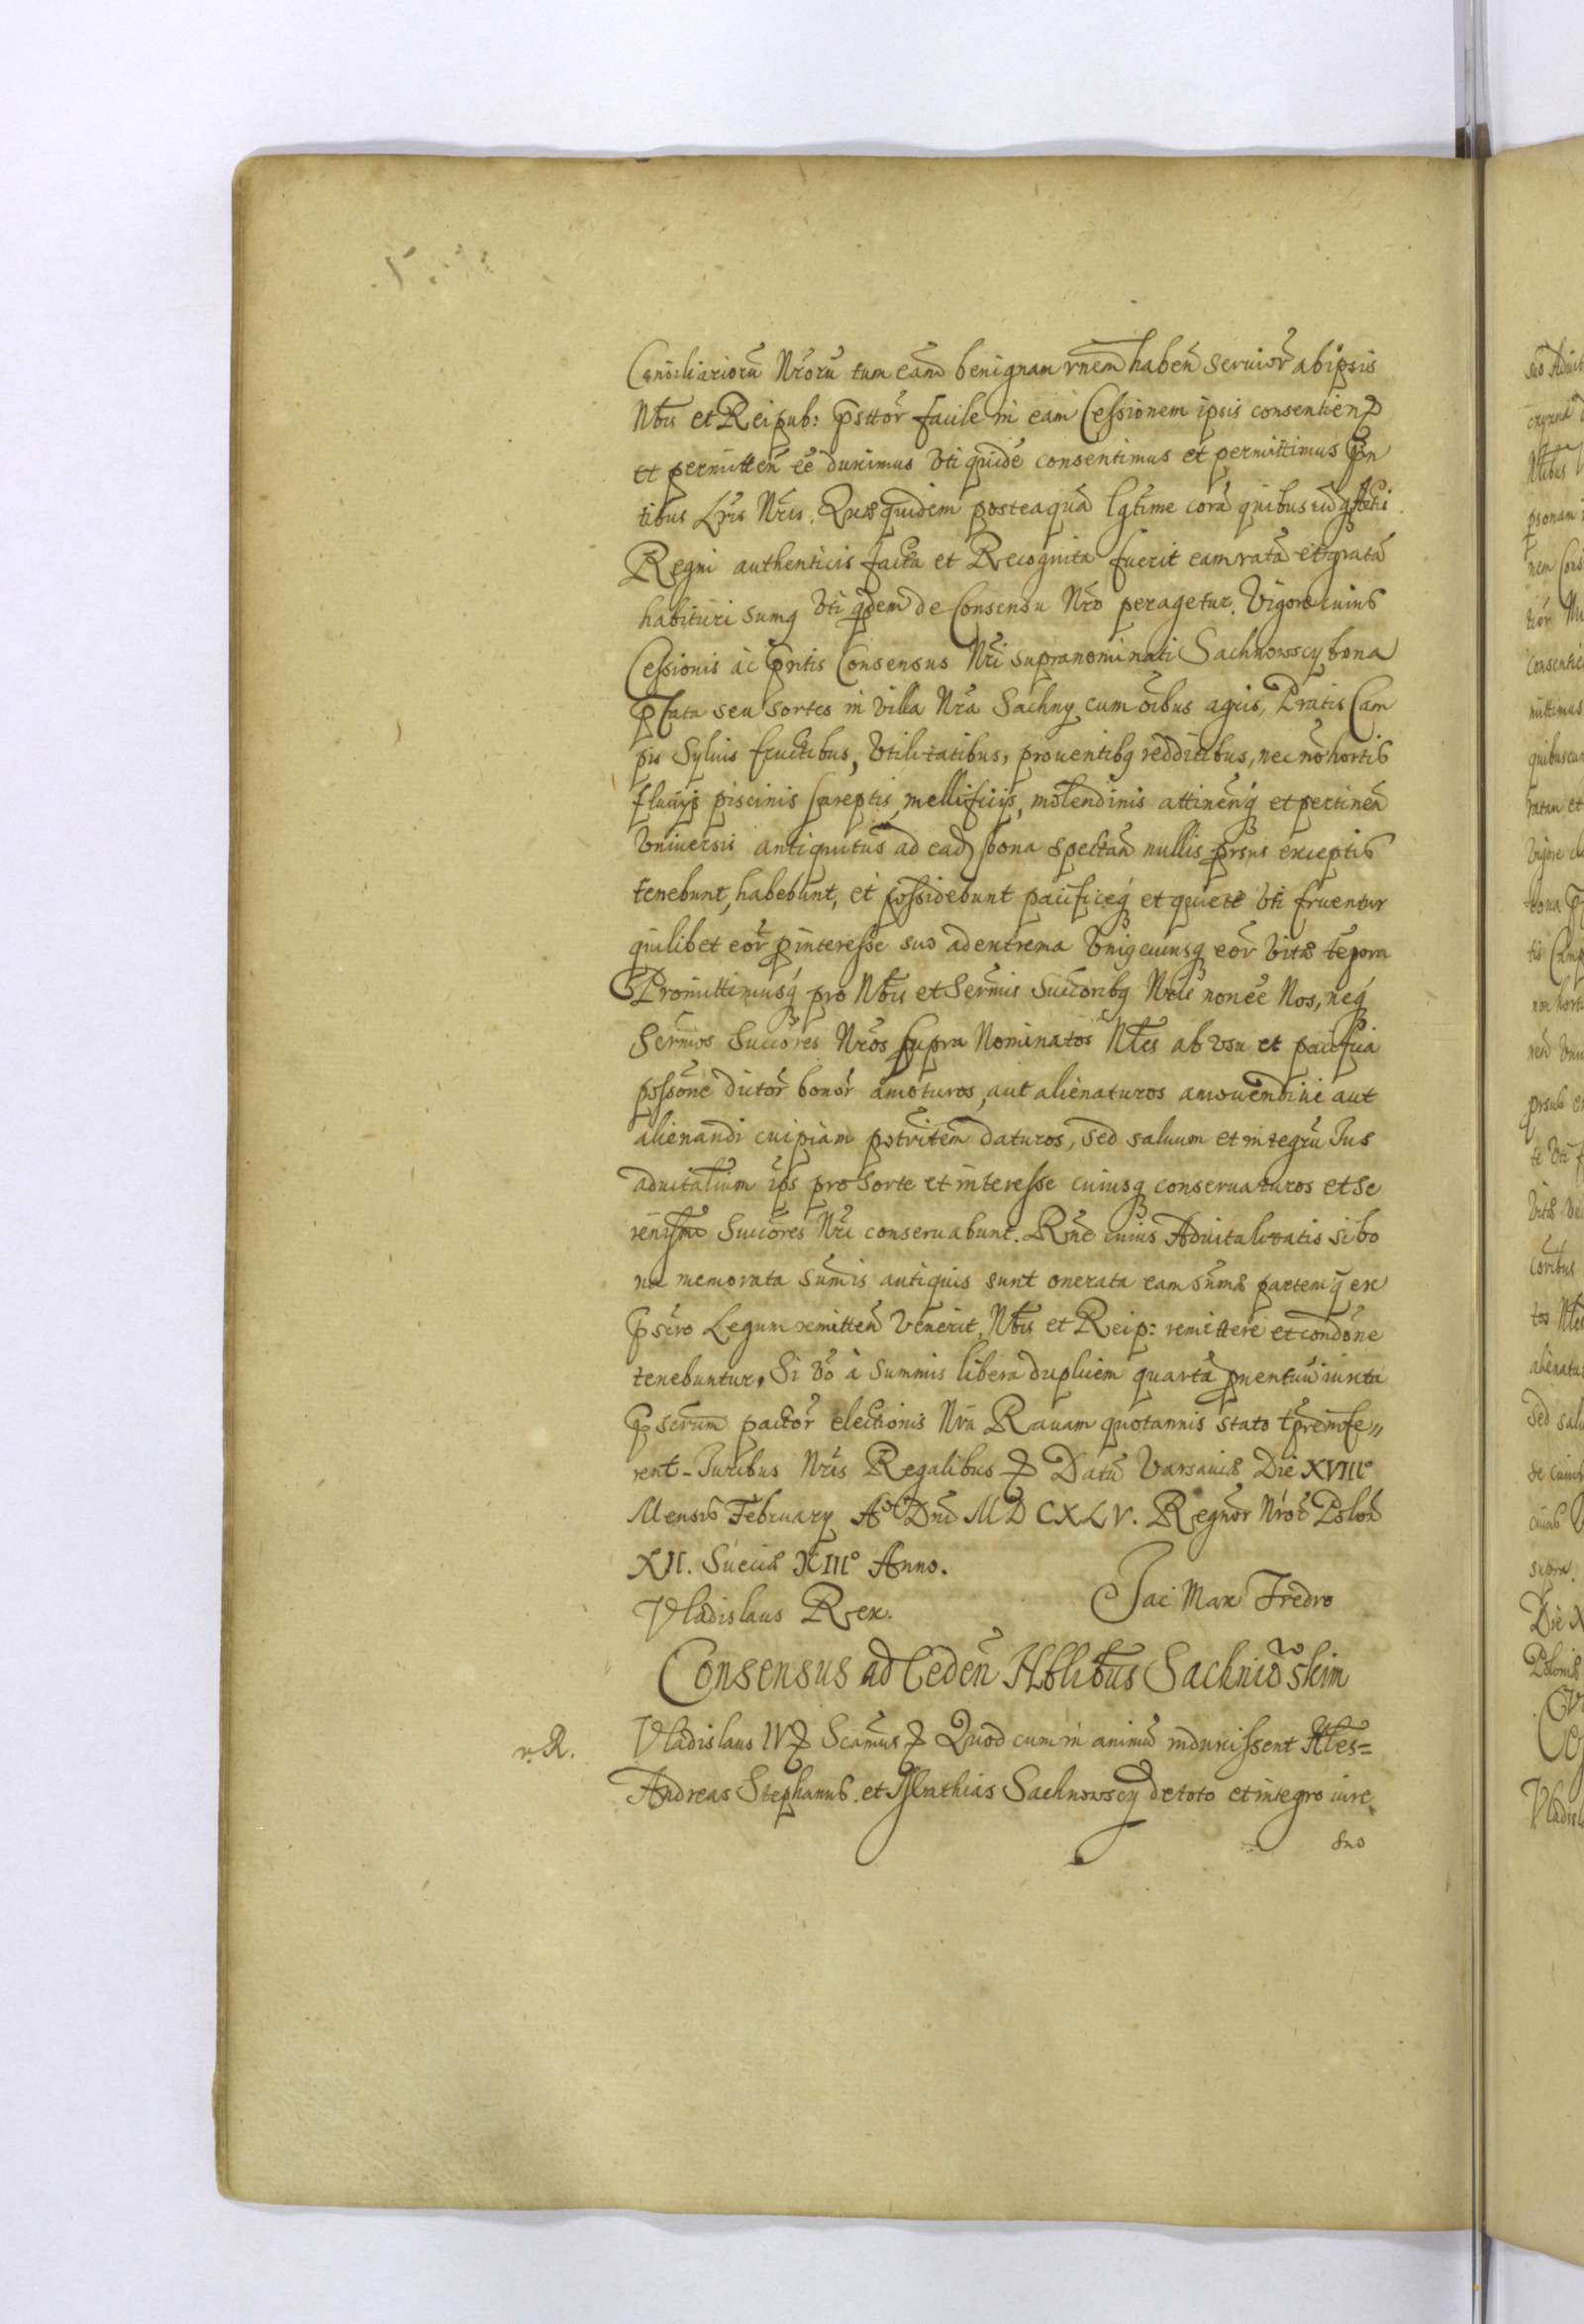 Consiliarioru Nroru tum eam benignam rnem haben seruior ab ipsis
Nbis et Reipub: psttor facile in eam Cessionem ipsis consentien
et permitten ee duximus Vti quide consentimus et permittimus pn
tibus Lris Nris. Quae quidem posteaqua lgtime cora quibus Actis
Regni authenticis facta et Recognita fuerit eam rata et grata
habituri sumq Vti qdem de Consensu Nro peragetur. Vigore cuius
Cessionis ac pntis Consensus Nri supranominati Sachnowscy bona
pfata seu sortes in villa Nra Sachny cum oibus agris, Pratis Cam
pis Syluis fructibus, Vtilitatibus, prouentibq redditibus, nec no hortis
fluuijs piscinis mellificijs, molendinis attinenq et pertinen
Vniuersis antiquitus ad ead bona spectan nullis prsus exceptis
tenebunt, habebunt, et possidebunt pacificeq et quiete Vti fruentur
quilibet eor p interesse suo ad extrema Vniq cuiusq eor Vitae tepora
Promittimusq pro Nbis et Sermis Succoribq Nris non ee Nos, neq
Sermos Succores Nros supra Nominatos Nbles ab vsu et pacifica
possone dictor bonor amoturos, aut alienaturos amouendi ue aut
alienandi cuipiam potritem daturos, Sed saluum et integru Ius
aduitalium ips pro sorte et interesse cuiusq conseruaturos et Se
renismi Succores Nri conseruabunt. Rne cuius Aduitalitatis si bo
na memorata Sumis antiquis sunt onerata eam sumae partem q ex
pscro Legum remitten Venerit, Nbis et Reip: remittere et condone
tenebuntur. Si Vo à Summis libera duplicem quarta puentuu iuxta
pscrum pactor electionis Nra Rauam quotannis stato tpre infe„
rent - Iuribus Nris Regalibus Datu Varsauiae Die XVIII°
Mensis February Ao Dni MDCXLV. Regnor Nror Polon
XII. Sueciae XIII° Anno.
Vladislaus Rex. Jac Max Fredro
Consensus ad Ceden Nblibus Sachniowskim
v. R. Vladislaus IV Scamus Quod cum in animu induxissent Nbles=
Andreas Stephanus. et Mathias Sachnowscy de toto et integro iure
suo